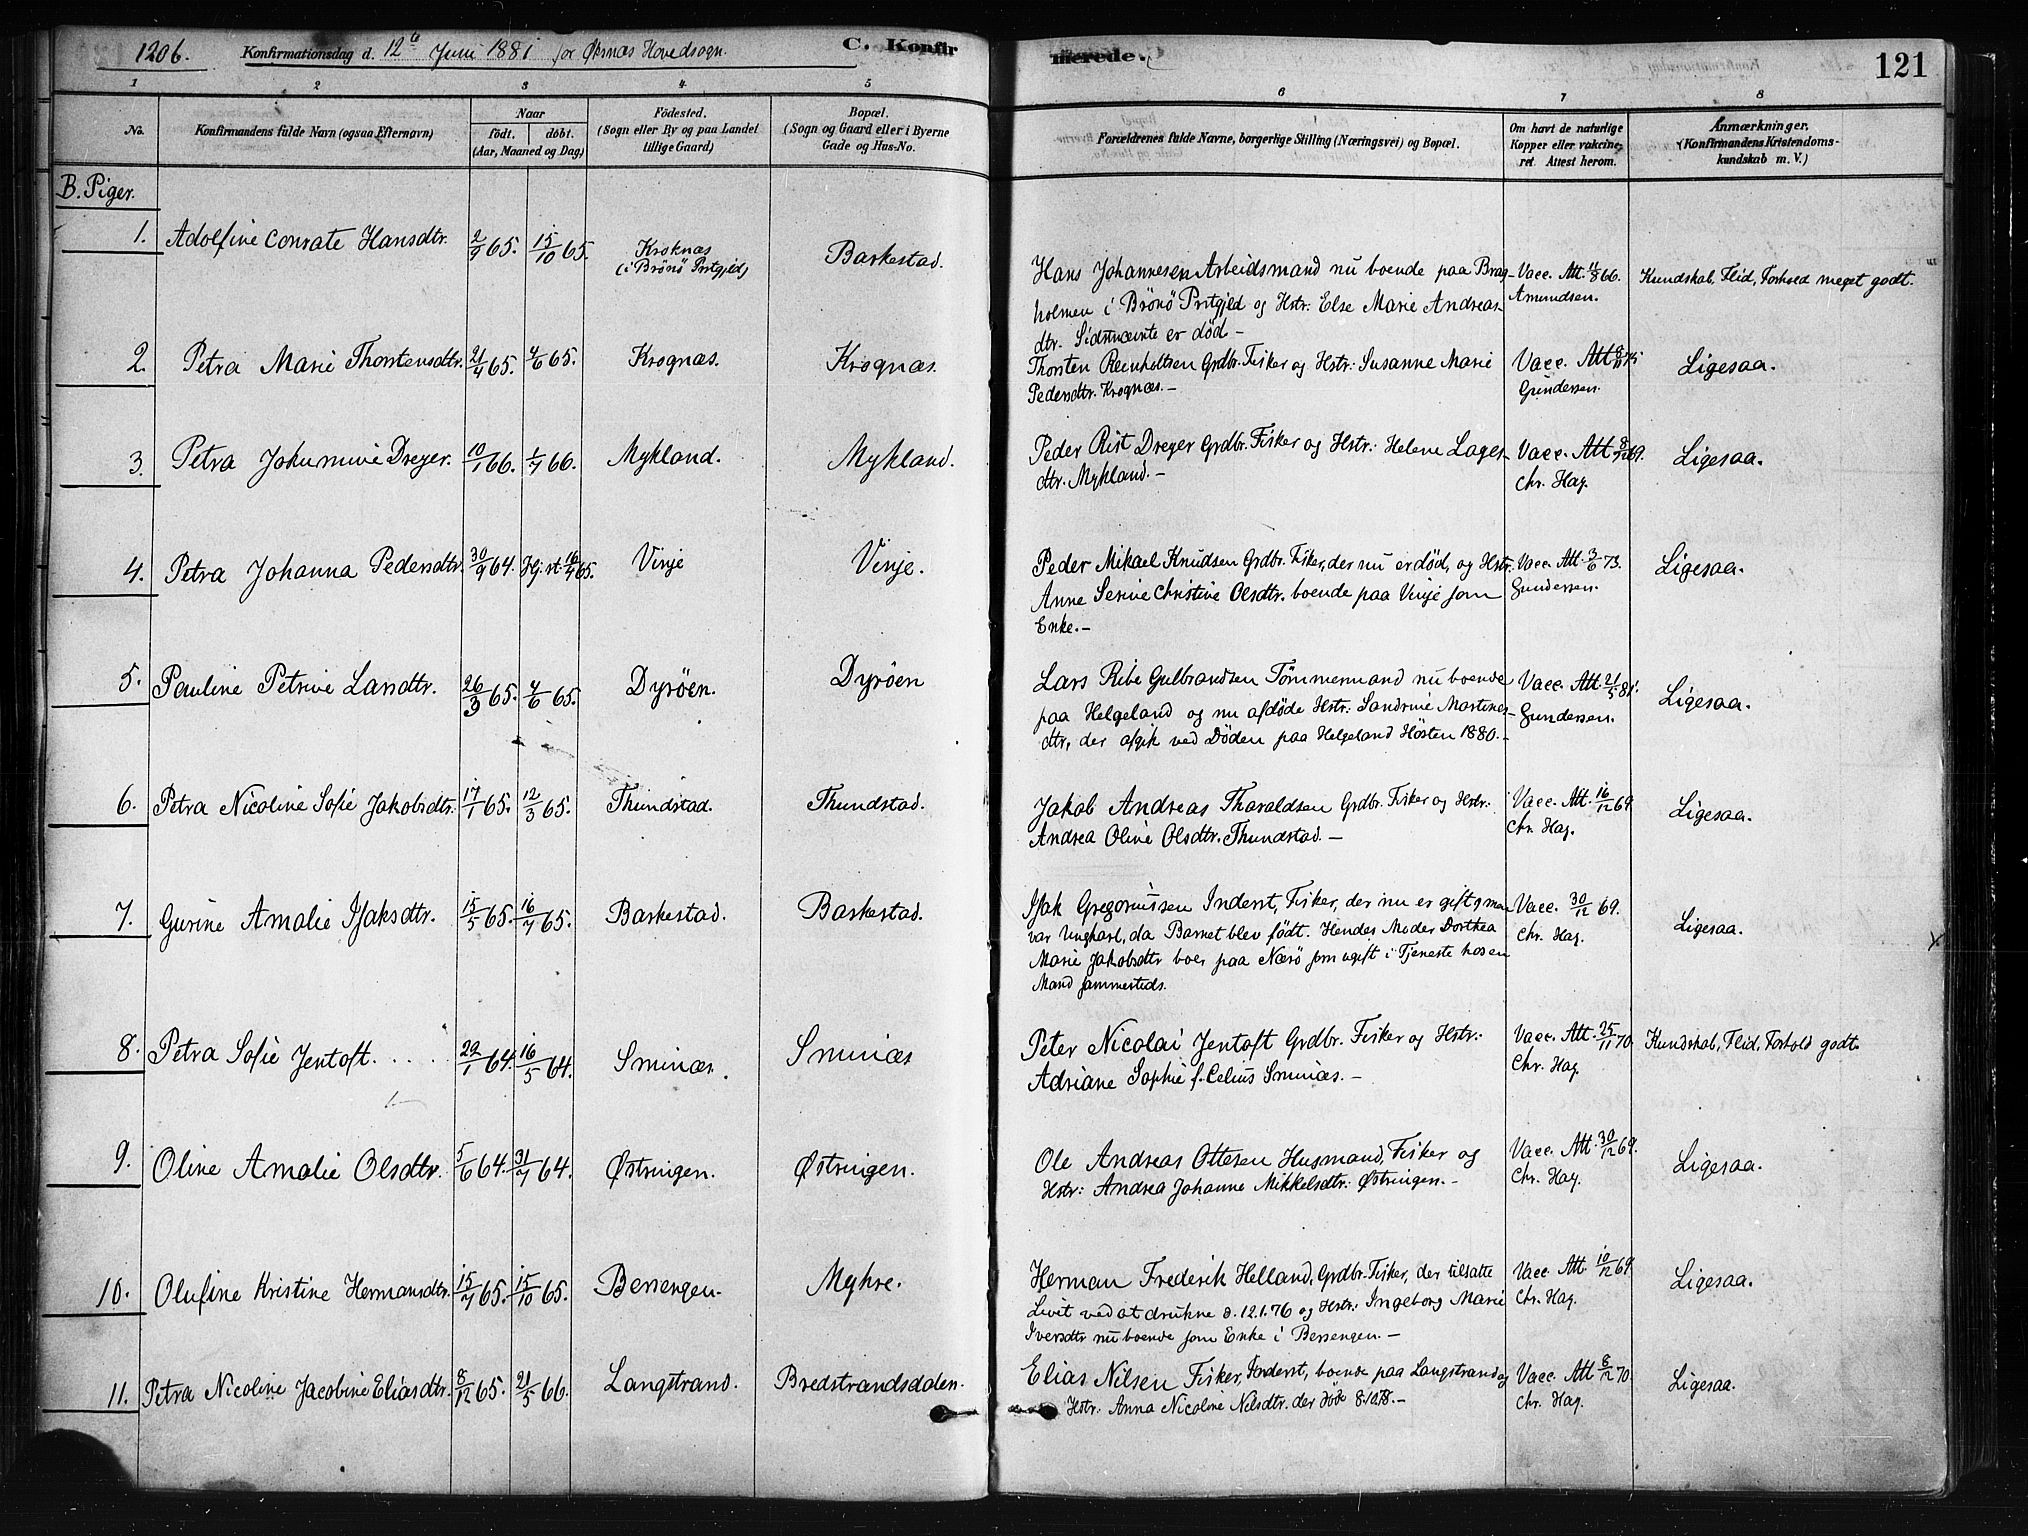 120b. Konfirmationsdag d. 12te Juni 1881 for Øksnæs Hovedsogn. C. Konfirmerede. 121
1 2 3 4 5 6 7 8
No. Konfirmandens fulde Navn (ogsaa Efternavn)
Naar
födt. döbt.
(Aar, Maaned og Dag)
Födested.
(Sogn eller By og paa Landet
tillige Gaard)
Bopæl.
(Sogn og Gaard eller i Byerne
Gade og Hus-No.
Forældrenes fulde Navne, borgerlige Stilling (Næringsvei) og Bopæl.
Om havt de naturlige
Kopper eller vakcine-
ret. Attest herom.
Anmærkninger.
(Konfirmandens Kristendoms-
kundskab m. V.)
B. Piger.
1. Adolfine Conrate Hansdtr. 2/9 65. 15/10 65. Kroknæs
(i Brönö Prstgjeld) Barkestad.
Hans Johannesen Arbeidsmand nu boende paa Brag-
holmen i Brönö Prstgjeld og Hstr: Else Marie Andreas-
dtr. Sidstnævnte er död.-
Vacc. Att. 11/8 66.
Amundsen.
Kundskab, Flid, Forhold meget godt.
2. Petra Marie Thorstensdtr. 21/4 65. 4/6 65. Krognæs. Krognæs.
Thorsten Reinholtsen Grdbr. Fisker og Hstr: Susanne Marie
Pedersdtr. Krognæs.-
Vacc. Att
Gundersen.
Ligesaa.
3. Petra Johumine Dreyer. 10/1 66. 1/7 66. Mykland. Mykland.
Peder Rist Dreyer Grdbr. Fisker og Hstr: Helene Lages-
dtr. Mykland.-
Vacc. Att 8/12 69.
Chr. Hag.
Ligesaa.
4. Petra Johanna Pedersdtr. 30/9 64. Hj. st. 16/4 65. Vinje Vinje.
Peder Mikael Knudsen Grdbr. Fisker, der nu er död, og Hstr:
Anne Serine Christine Olsdtr. boende paa Vinje som
Enke.-
Vacc. Att. 3/6 73.
Gundersen.
Ligesaa.
5. Pauline Petrine Larsdtr. 26/3 65. 4/6 65. Dyröen. Dyröen
Lars Ribe Gulbrandsen Tömmermand nu boende
paa Helgeland og nu afdöde Hstr: Sandrine Martines-
dtr, der afgik ved Döden paa Helgeland Hösten 1880.-
Vacc. Att. 21/5 81.
Gundersen.
Ligesaa.
6. Petra Nicoline Sofie Jakobsdtr. 17/1 65. 12/3 65. Thundstad. Thundstad.
Jakob Andreas Tharaldsen Grdbr. Fisker og Hstr:
Andrea Oline Olsdtr. Thundstad.-
Vacc. Att. 16/12 69.
Chr. Hag.
Ligesaa.
7. Gurine Amalie Isaksdtr. 15/5 65. 16/7 65. Barkestad. Barkestad.
Isak Gregoriussen Inderst, Fisker, der nu er gift, men
var Ungkarl, da Barnet blev födt. Hendes Moder Dorthea
Marie Jakobsdtr boer paa Nærö som ugift i Tjeneste hos en
Mand sammesteds.
Vacc. 30/12 69.
Chr. Hag.
Ligesaa.
8. Petra Sofie Jentoft. 29/1 64. 16/5 64. Sminæs. Sminæs
Peter Nicolai Jentoft Grdbr. Fisker og Hstr:
Adriane Sophie f. Celius Sminæs.-
Vacc. Att. 25/11 70.
Chr. Hag.
Kundskab, Flid, Forhold godt.
9. Oline Amalie Olsdtr. 5/6 64. 31/7 64. Østringen. Østringen.
Ole Andreas Ottesen Husmand, Fisker og
Hstr: Andrea Johanne Mikkelsdtr: Østringen.-
Vacc. Att 30/12 69.
Chr. Hag.
Ligesaa.
10. Olufine Kristine Hermansdtr. 15/7 65. 15/10 65. Bersengen. Myhre.
Herman Frederik Helland, Grdbr. Fisker, der tilsatte
Livet ved at drukne d. 12.1.76 og Hstr: Ingeborg Marie
Iversdtr nu boende som Enke i Bersengen.-
Vacc. Att. 10/12 69.
Chr. Hag.
Ligesaa.
11. Petra Nicoline Jacobine Eliasdtr. 8/12 65. 21/5 66. Langstrand. Bredstrandsdalen.
Elias Nilsen Fisker, Inderst, boende paa Langstrand og
Hstr: Anna Nicoline Nilsdtr. der döde 8.10.78.-
Vacc. Att 8/12 70.
Chr. Hag.
Ligesaa.